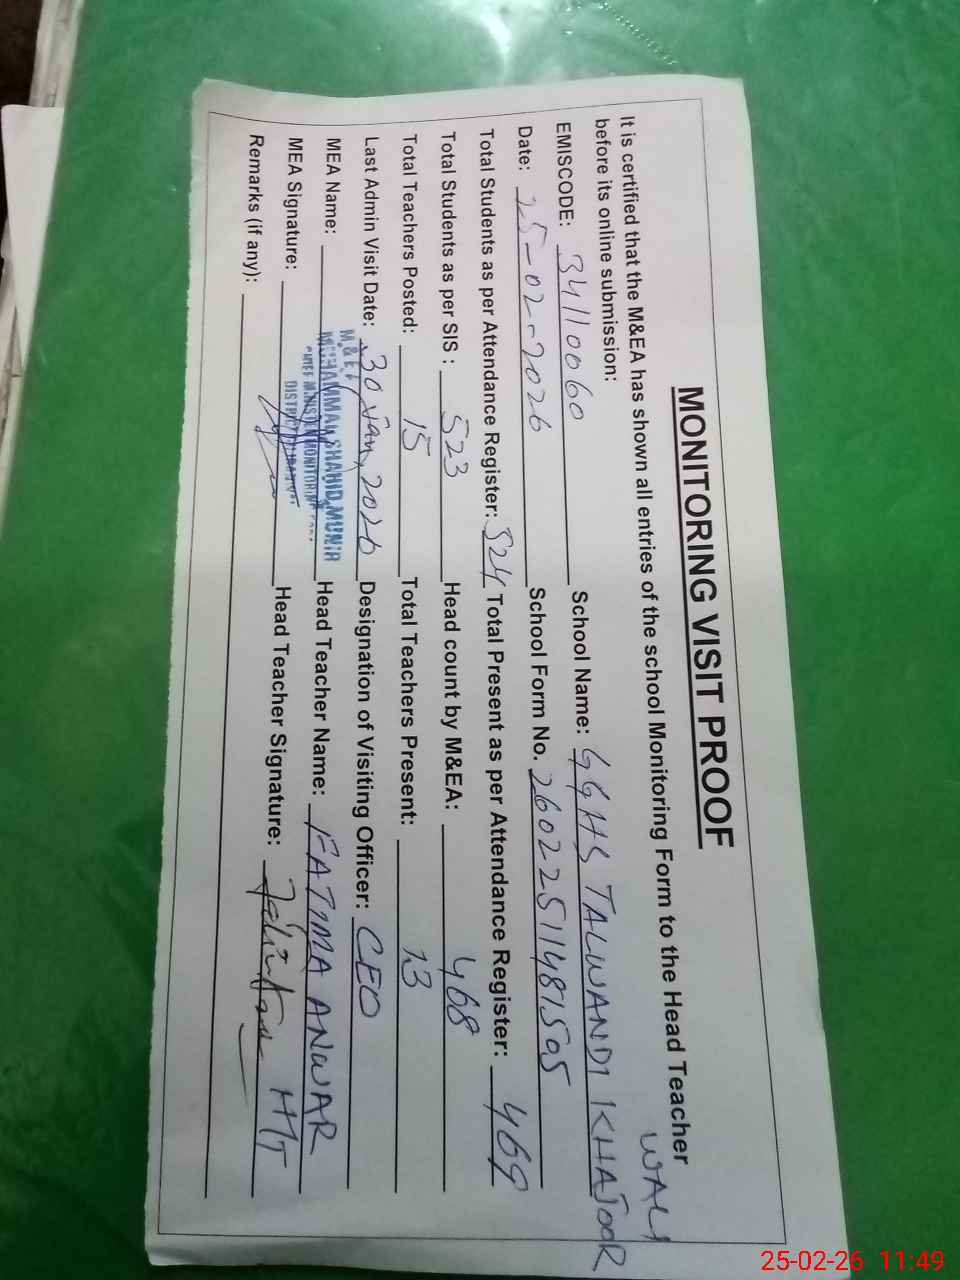 MONITORING VISIT PROOF
It is certified that the M&EA has shown all entries of the school Monitoring Form to the Head Teacher
before its online submission:
WALI
EMISCODE: 34110060 School Name: GGHS TALWANDI KHAJOOR
Date: 25-02-2026 School Form No. 26022511481505
Total Students as per Attendance Register: 524 Total Present as per Attendance Register: 469
Total Students as per SIS : 523 Head count by M&EA: 468
Total Teachers Posted: 15 Total Teachers Present: 13
Last Admin Visit Date: 30 Jan, 2026 Designation of Visiting Officer: CEO
MEA Name: MUHAMMAD SHAHID MUNIR Head Teacher Name: FATIMA ANWAR
CHIEF MINISTER MONITORING
DISTRICT
MEA Signature: Head Teacher Signature: HT
Remarks (if any):
25-02-26 11:49